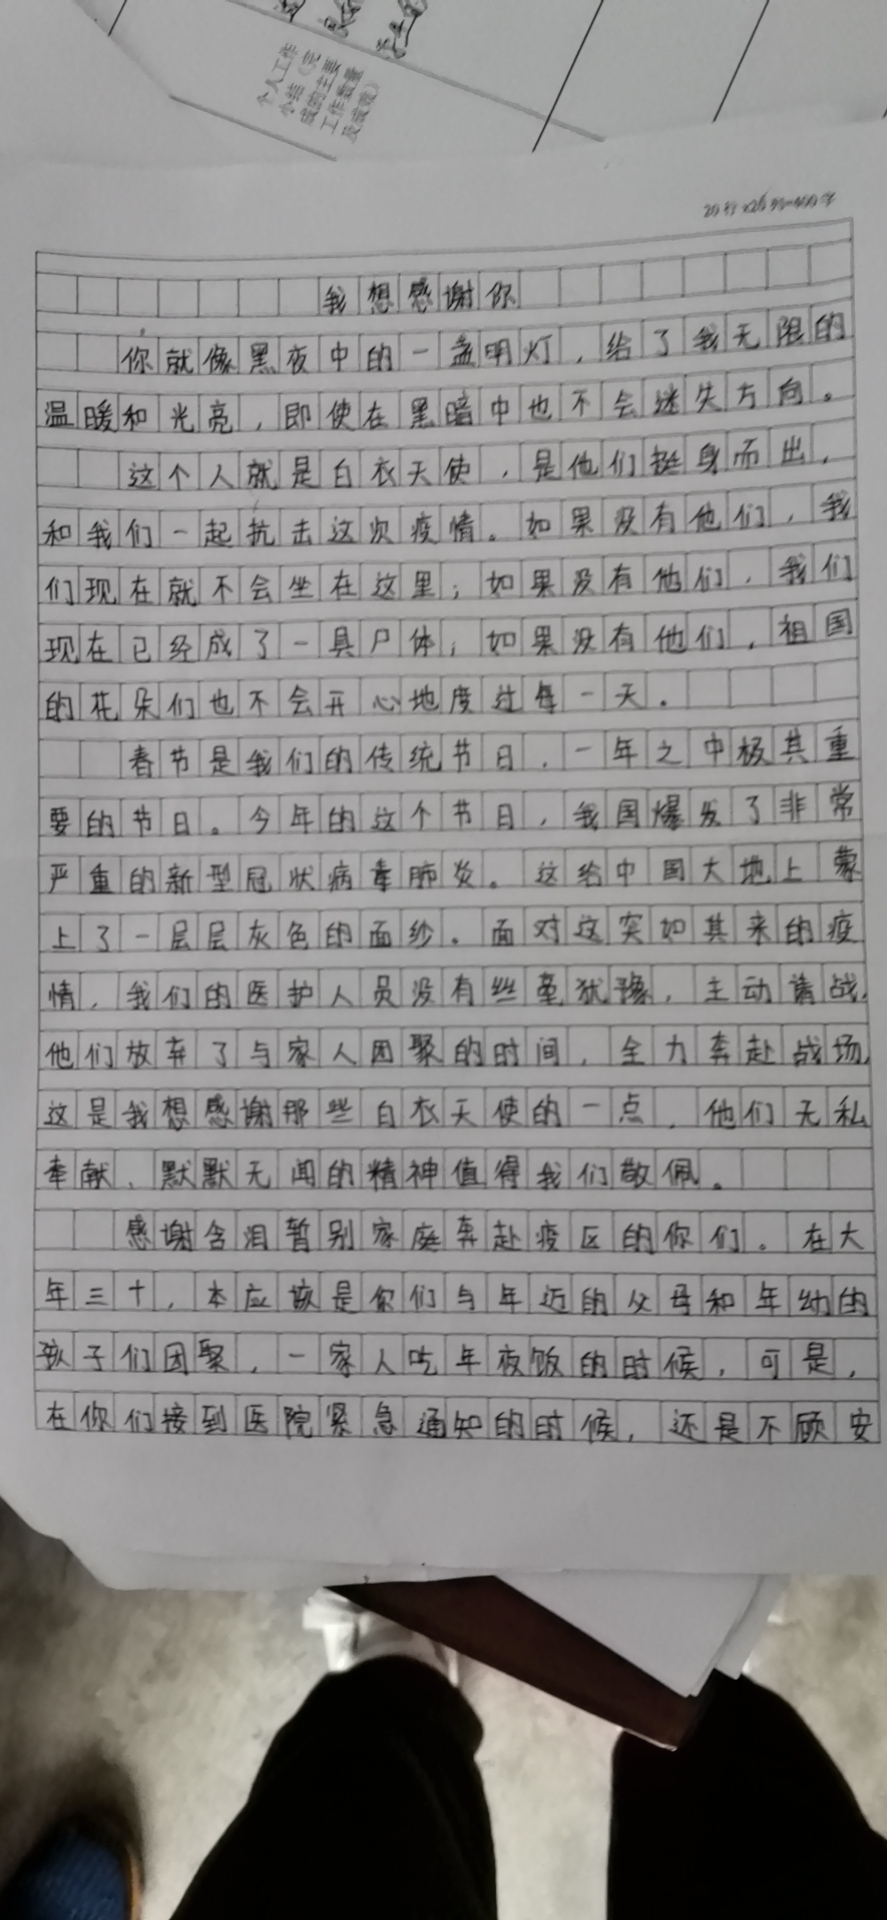 个人工作
小结（完
成的主要
工作数量
及成效）
20行×20列=400字
我想感谢你
你就像黑夜中的一盏明灯，给了我无限的
温暖和光亮，即使在黑暗中也不会迷失方向。
这个人就是白衣天使，是他们挺身而出，
和我们一起抗击这次疫情。如果没有他们，我
们现在就不会坐在这里；如果没有他们，我们
现在已经成了一具尸体；如果没有他们，祖国
的花朵们也不会开心地度过每一天。
春节是我们的传统节日，一年之中极其重
要的节日。今年的这个节日，我国爆发了非常
严重的新型冠状病毒肺炎。这给中国大地上蒙
上了一层层灰色的面纱。面对这突如其来的疫
情，我们的医护人员没有丝毫犹豫，主动请战，
他们放弃了与家人团聚的时间，全力奔赴战场，
这是我想感谢那些白衣天使的一点，他们无私
奉献、默默无闻的精神值得我们敬佩。
感谢含泪暂别家庭奔赴疫区的你们。在大
年三十，本应该是你们与年迈的父母和年幼的
孩子们团聚，一家人吃年夜饭的时候，可是，
在你们接到医院紧急通知的时候，还是不顾安